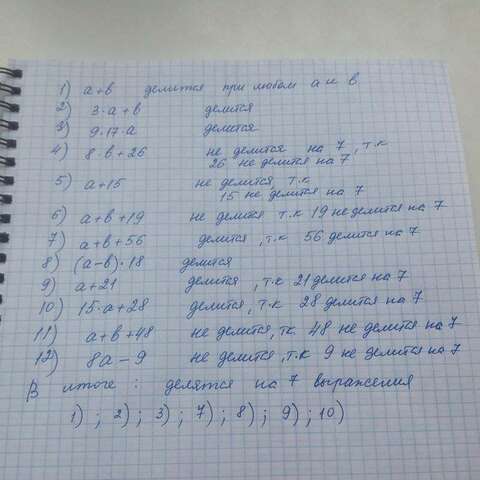 1) a+в делится при любом a и в
2) 3·a+в делится
3) 9·17·a делится
4) 8·в+26 не делится на 7, т.к
26 не делится на 7
5) a+15 не делится, т.к
15 не делится на 7
6) a+в+19 не делится т.к 19 не делится на 7
7) a+в+56 делится, т.к 56 делится на 7
8) (a-в)·18 делится
9) a+21 делится, т.к 21 делится на 7
10) 15·a+28 делится, т.к 28 делится на 7
11) a+в+48 не делится, тк 48 не делится на 7
12) 8a-9 не делится, т.к 9 не делится на 7
В итоге: делятся на 7 выражения
1); 2); 3); 7); 8); 9); 10)